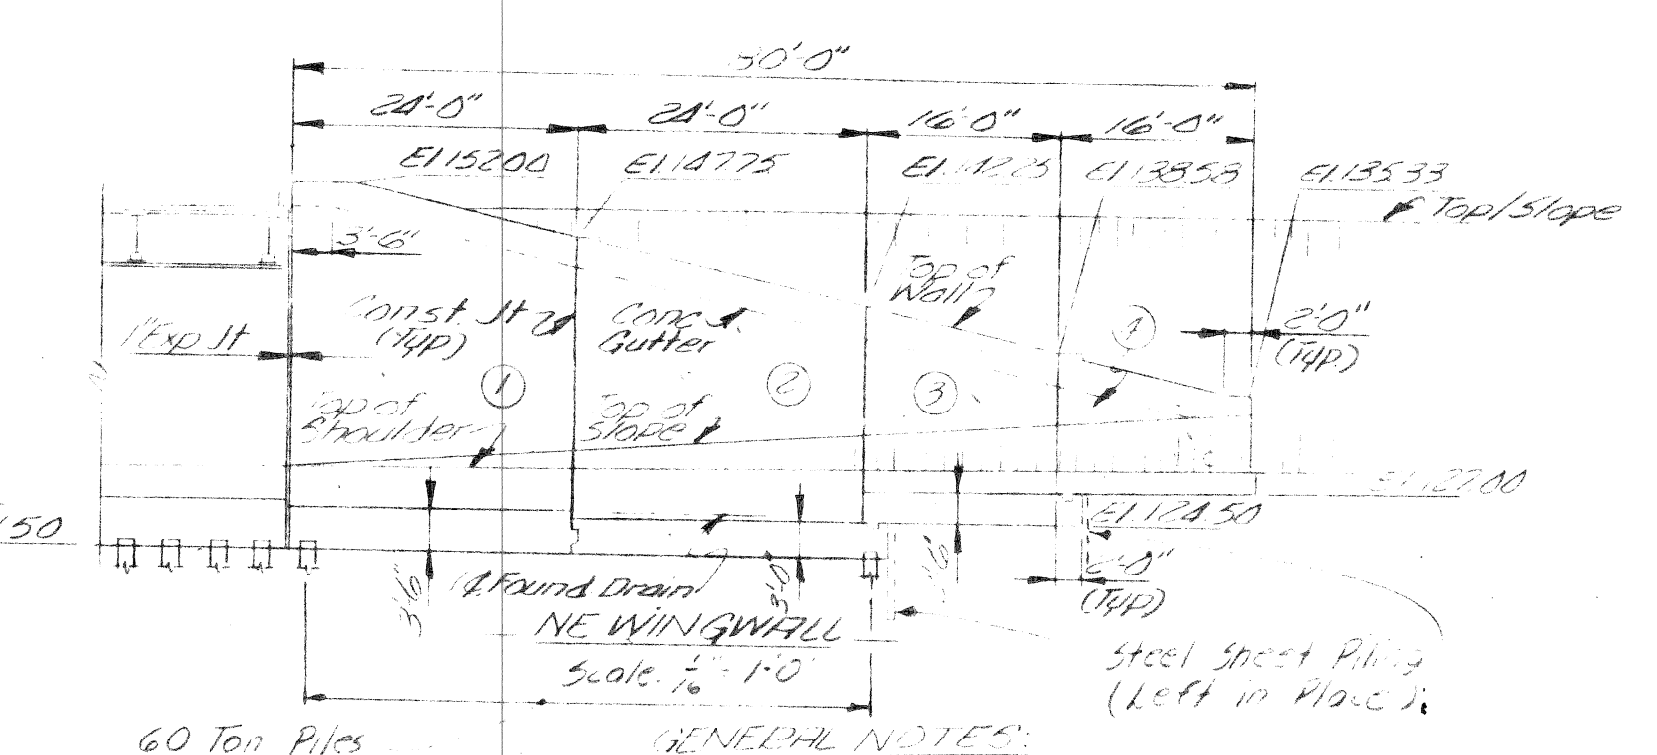 80'-0"
24'-0" 24'-0" 16'-0" 16'-0"
El.152.00 El.147.75 El.142.25 El.138.58 El.135.33
Top/Slope
3'-6"
Top of
Wall
Const. Jt
(Typ.)
Conc.
Gutter
1
2'-0"
(Typ.)
1"Exp Jt
1
2
3
Top of
Shoulder
Top of
Slope
El.127.00
El.124.50
.50
3'-6"
℄ Found Drain
3'-0"
2'-0"
(Typ)
NE WINGWALL
Scale: 1/16" = 1'-0"
Steel Sheet Piling
(Left in Place)
60 Ton Piles
GENERAL NOTES: